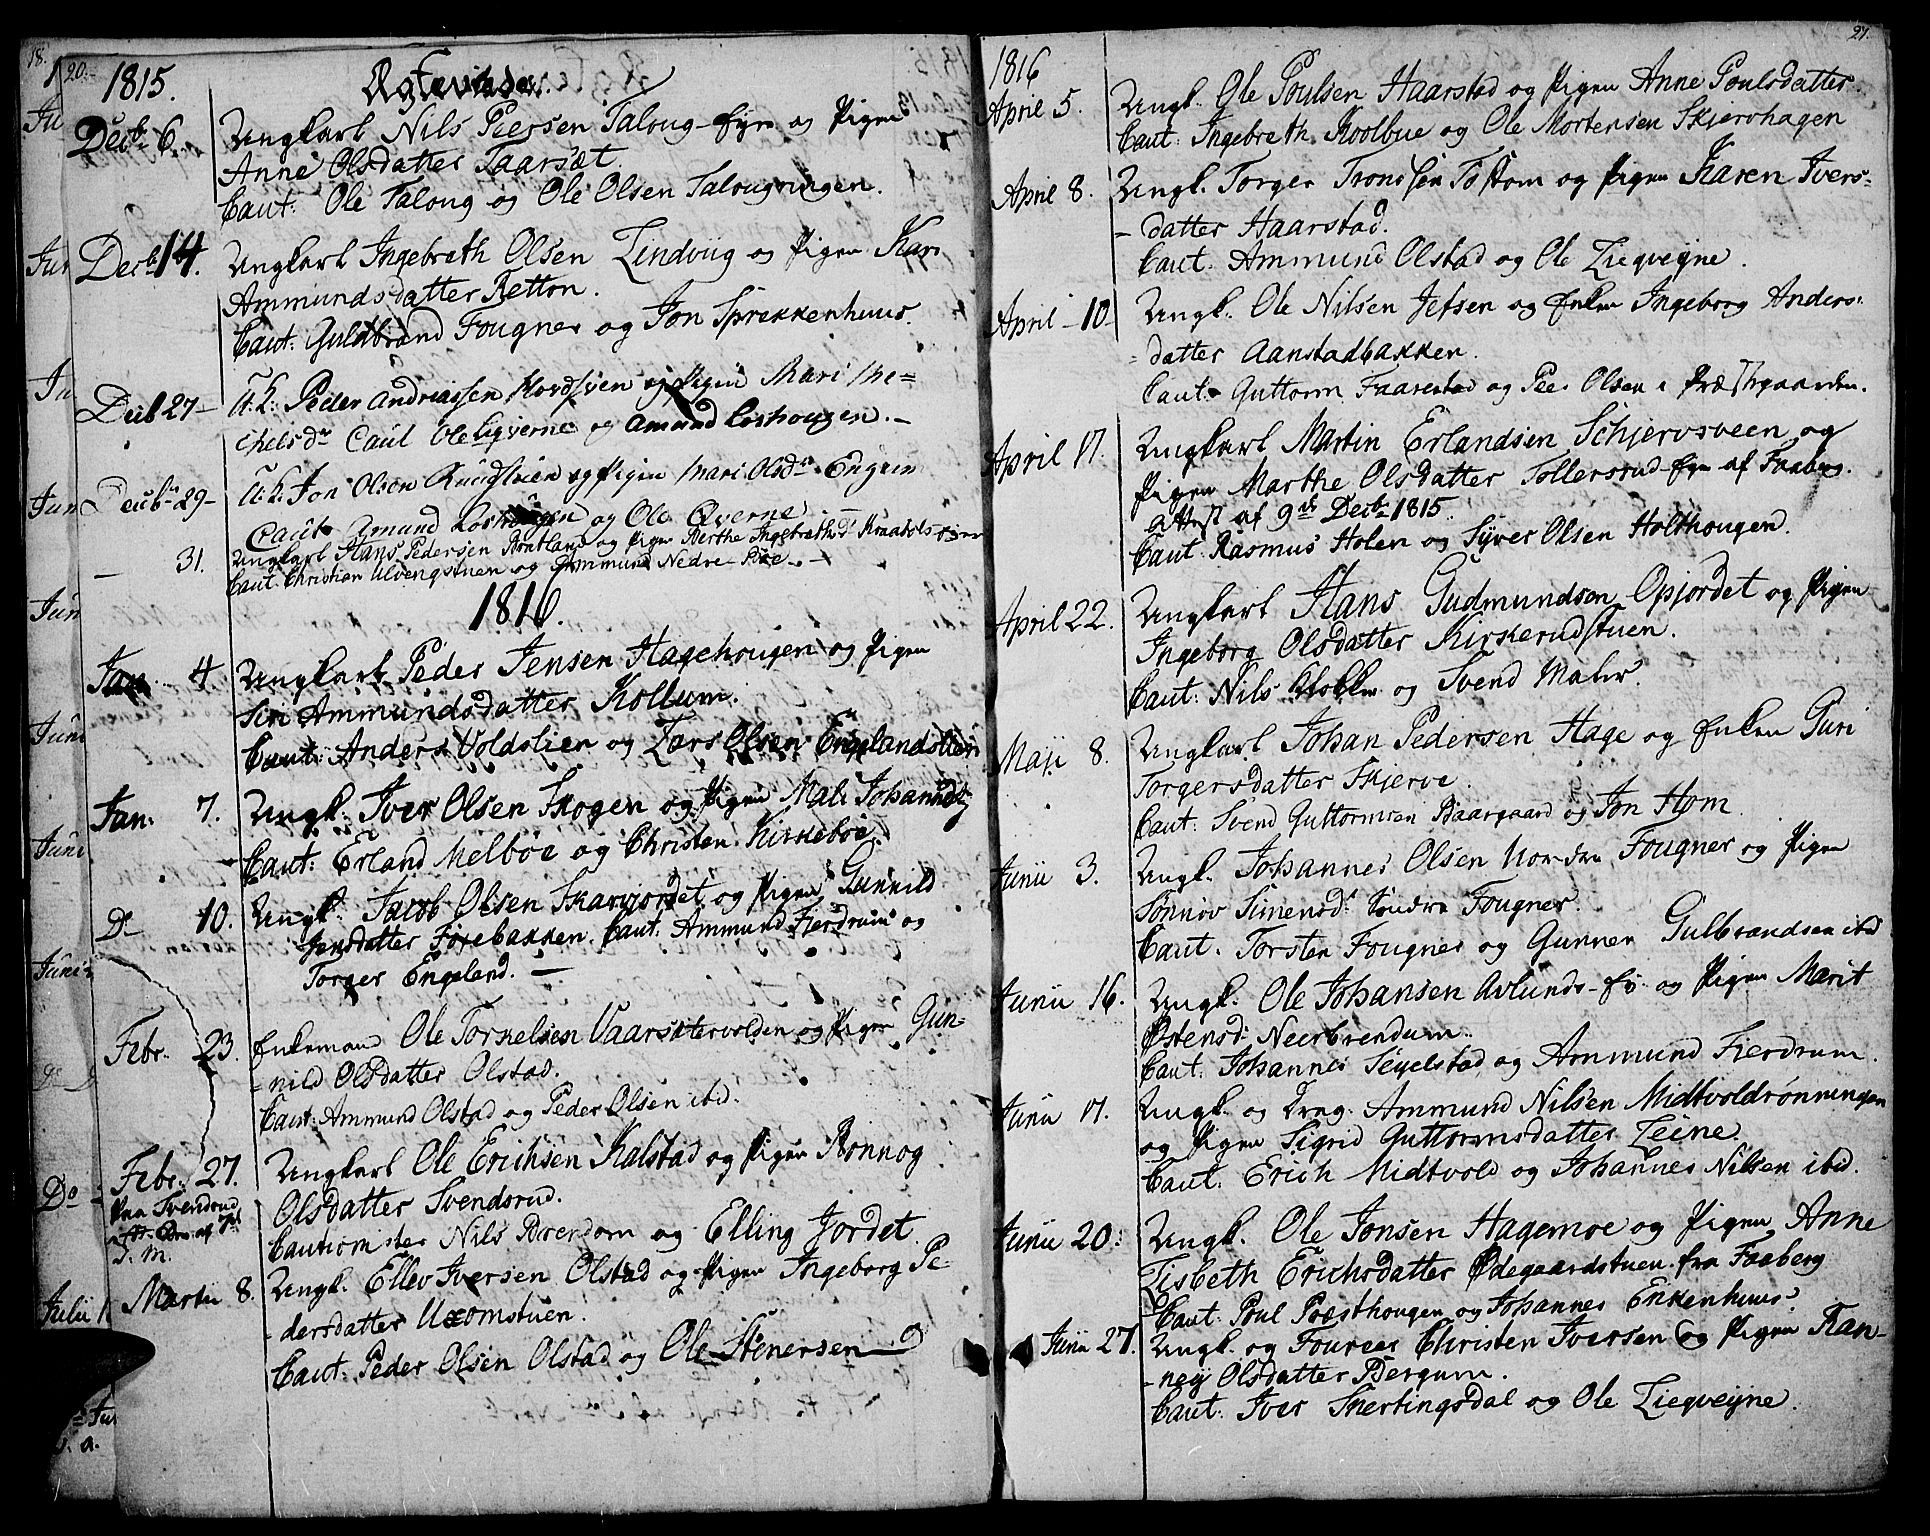 18.
20.
1815.
Ægtevidde.
Decb. 6.
Ungkarl Nils Peersen Taloug-Eye og Pigen
Anne Olsdatter Faarsæt.
Caut: Ole Taloug og Ole Olsen Talougringen.
Decb. 14.
Ungkarl Ingebreth Olsen Lindviig og Pigen Kari
Ammundsdatter Retton.
Caut: Guldbrand Fougner og Jon Sprekkenhuus.
Decb 27-
U.K: Peder Andriassen og Pigen Mari Mi-
chelsdr Caut Ole Liqverne og Amund Loshougen. -
Decbr 29-
U.K. Jon Olsen og Pigen Mari Olsdr Engen
Caut Amund Loshougen og Ole
- 31.
Ungkarl Hans Pedersen og Pigen Berthe Ingebrethsd.
Caut. Christian Ulvengstuen og Ammund Nedre-
1816.
Jan. 4
Ungkarl Peder Jensen Hagehougen og Pigen
Siri Ammundsdatter Kollum.
Caut: Anders Voldslien og Lars Olsen Engelandslien
Jan. 7.
Ungk. Iver Olsen Skogen og Pigen Mali Johannesd.
Caut: Erland Melböe og Christen Kirkeböe.
D- 10.
Ungk. Jacob Olsen Skarvjordet og Pigen Gunnild
Jensdatter Forebakken. Caut. Ammund Fierdrum og
Torger Engeland. -
Febr. 23.
Enkeman Ole Torkelsen Vaarsætervolden og Pigen Gun-
-nild Olsdatter Olstad.
Caut: Ammund Olstad og Peder Olsen ibd.
Febr. 27.
Ungkarl Ole Erichsen Kalstad og Pigen Rönnog
Paa Svendsrud
Olsdatter Svendsrud.
Cautionister Nils Brendom og Elling Jordet
Martii 8.
Ungk. Ellev Iversen Olstad og Pigen Ingeborg Pe-
-dersdatter Uxomstuen.
Caut: Peder Olsen Olstad og Ole Stenersen
27.
1816
April 5.
Ungk. Ole Poulsen Haarstad og Pigen Anne Poulsdatter.
Caut: Ingebreth Koolbue og Ole Mortensen Skjervhagen
April 8.
Ungk. Torger Tronssen Tostom og Pigen Karen Ivers-
-datter Haarstad.
Caut. Ammund Olstad og Ole Lieqveijne.
April - 10
Ungk. Ole Nilsen Jefsen og Enken Ingeborg Anders-
-datter Aanstadbakken.
Caut. Guttorm Faarestad og Peer Olsen i Præstgaarden.
April 17.
Ungkarl Martin Erlandsen Schjervsveen og
Pigen Marthe Olsdatter Tollersrud-Eye af Faaberg.
Attest af 9de Decb 1815.
Caut. Rasmus Holen og Syver Olsen Holthougen.
April 22.
Ungkarl Hans Gudmundsen Opjordet og Pigen
Ingeborg Olsdatter Kirkerudstuen.
Caut: Nils og Svend Maler.
Maji 8.
Ungkarl Johan Pedersen Hage og Enken Guri
Torgersdatter Skjerve.
Caut. Svend Guttormsen Baargaard og Jon Hom.
Junii 3.
Ungk. Johannes Olsen Nordre Fougner og Pigen
Sönnöv Simensd. Söndre Fougner
Caut. Torsten Fougner og Gunner Gulbrandsen ibd
Junii 16.
Ungk. Ole Johansen Avlunds-Ey. og Pigen Marit
Østensd. Neerbrendum.
Caut. Johannes Seyelstad og Ammund Fierdrum.
Junii 17.
Ungk. og Drag. Ammund Nilsen Midtvoldrönningen
og Pigen Sigrid Guttormsdatter Leine.
Caut. Erich Midtvold og Johannes Nilsen ibd.
Junii 20.
Ungk. Ole Jonsen Hagemoe og Pigen Anne
Lisbeth Erichsdatter Ødegaardstuen fra Faaberg
Caut. Poul Præsthougen og Johannes Enkenhuus.
Junii 27.
Ungk. og Foureer Christen Iversen og Pigen Ran-
-neij Olsdatter Bergum.
Caut. Iver Skertingsdal og Ole Lieqveijne.